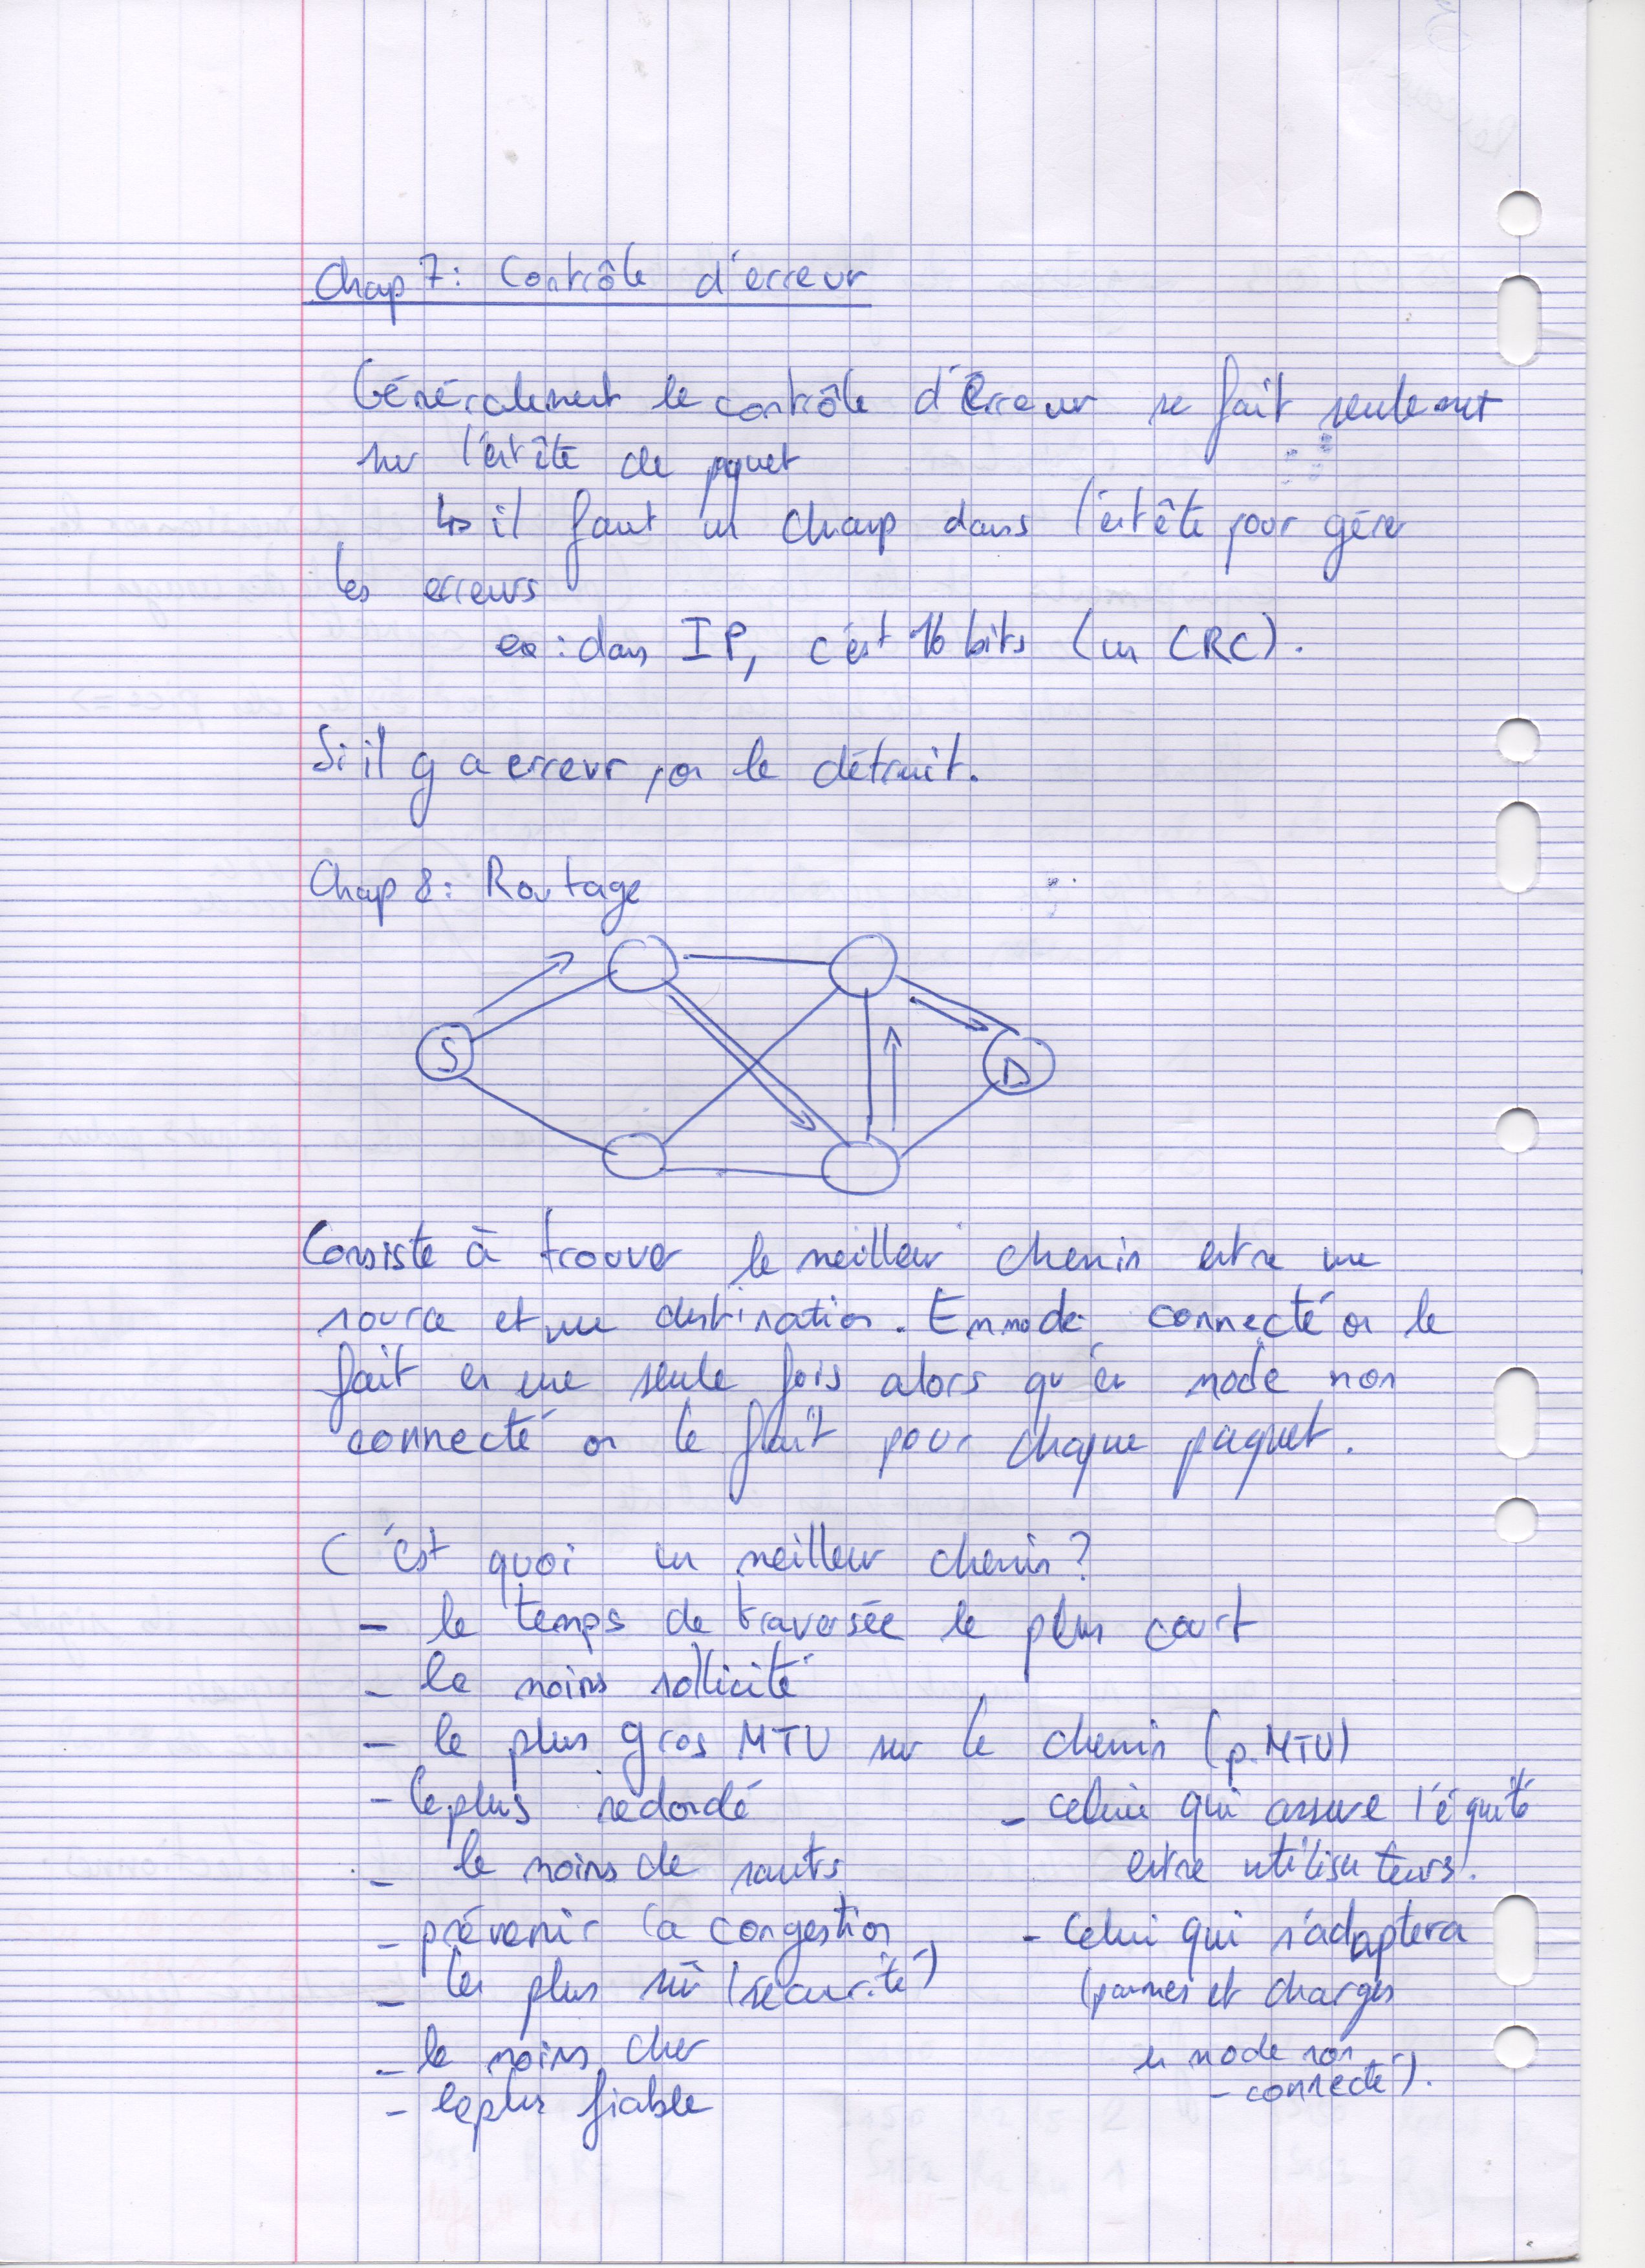 Chap 7: Contrôle d'erreur
Généralement le contrôle d'Erreur se fait seulement
sur l'entête de paquet
↳ il faut un champ dans l'entête pour gérer
les erreurs
ex : dans IP, c'est 16 bits (un CRC).
Si il y a erreur, on le détruit.
Chap 8: Routage
S
D
Consiste à trouver le meilleur chemin entre une
source et une destination. En mode connecté on le
fait en une seule fois alors qu'en mode non
connecté on le fait pour chaque paquet.
C'est quoi un meilleur chemin ?
- le temps de traversée le plus court
- le moins sollicité
- le plus gros MTU sur le chemin (p.MTU)
- le plus redondé
- le moins de sauts
- prévenir la congestion
- les plus sûr (sécurité)
- le moins cher
- le plus fiable
- celui qui assure l'équité
entre utilisateurs.
- celui qui s'adaptera
(pannes et charges
en mode non
- connecté).